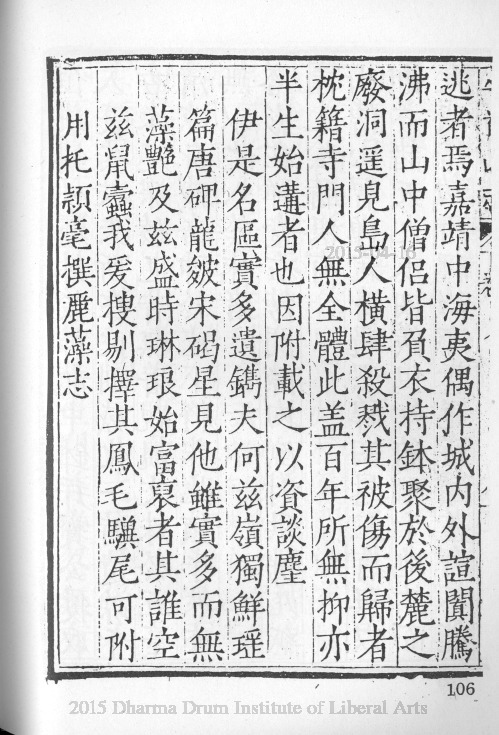 逃者焉嘉靖中海夷偶作城内外諠闐騰
沸而山中僧侣皆負衣持鉢聚於後麓之
廢洞遥見島人横肆殺戮其被傷而歸者
枕籍寺門人無全體此盖百年所無抑亦
半生始遘者也因附載之以資談麈
伊是名區實多遺鐫夫何兹嶺獨鮮瑶
篇唐碑龍皴宋碣星見他雖實多而無
藻艷及兹盛時琳琅始富裒者其誰空
兹鼠蠧我爰捜剔擇其鳳毛驥尾可附
用托頴毫撰麗藻志
2015-04-16
106
2015 Dharma Drum Institute of Liberal Arts